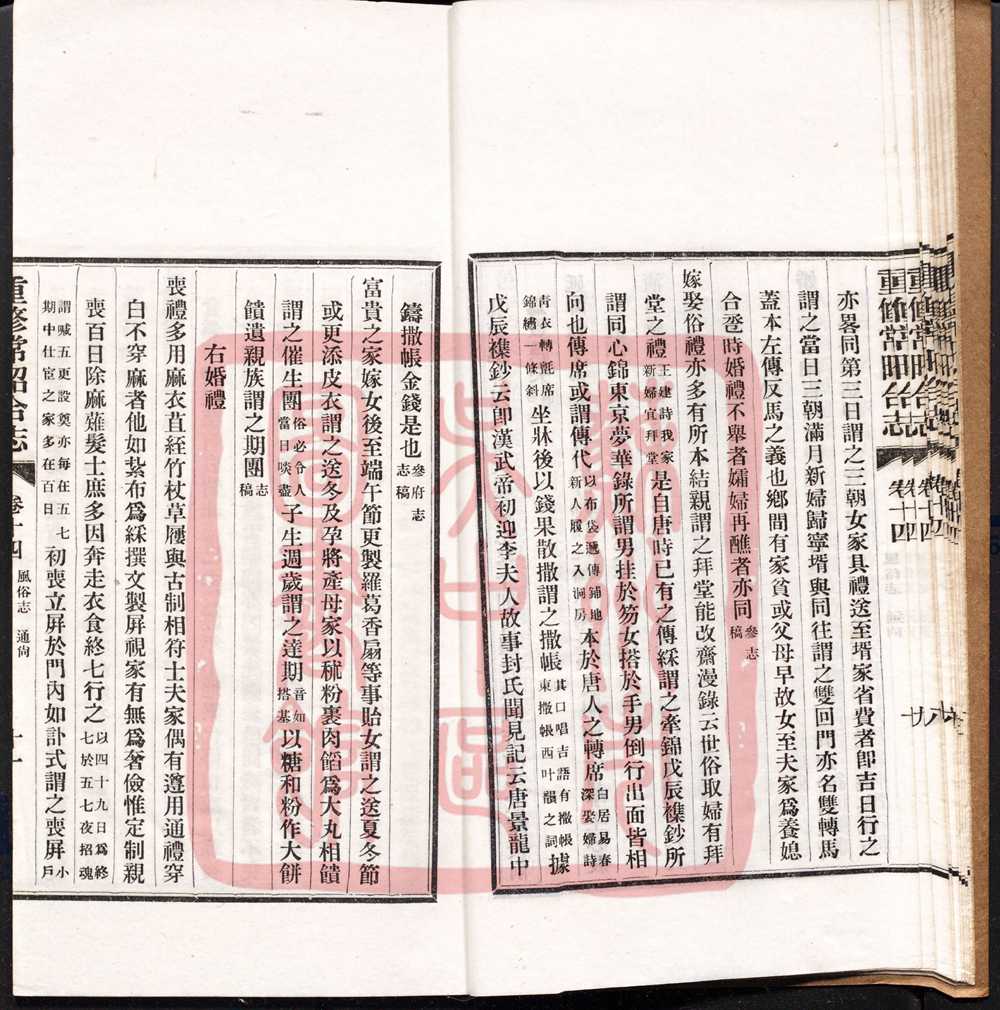 亦畧同第三日謂之三朝女家具禮送至壻家省費者卽吉日行之
謂之當日三朝滿月新婦歸寧壻與同往謂之雙回門亦名雙轉馬
蓋本左傳反馬之義也鄉間有家貧或父母早故女至夫家爲養媳
合巹時婚禮不舉者孀婦再醮者亦同參志稿
嫁娶俗禮亦多有所本結親謂之拜堂能改齋漫錄云世俗取婦有拜
堂之禮王建詩我家新婦宜拜堂是自唐時已有之傳綵謂之牽錦戊辰襍鈔所
謂同心錦東京夢華錄所謂男挂於笏女搭於手男倒行出面皆相
向也傳席或謂傳代以布袋遞傳鋪地新人履之入洞房本於唐人之轉席白居易春深娶婦詩
靑衣轉氈席錦繡一條斜坐牀後以錢果散撒謂之撒帳其口唱吉語有撒帳東撒帳西叶韻之詞據
戊辰襍鈔云卽漢武帝初迎李夫人故事封氏聞見記云唐景龍中
鑄撒帳金錢是也參府志志稿
富貴之家嫁女後至端午節更製羅葛香扇等事貽女謂之送夏冬節
或更添皮衣謂之送冬及孕將產母家以秫粉裹肉餡爲大丸相饋
謂之催生團俗必令人當日啖盡子生週歲謂之達期音如搭基以糖和粉作大餅
饋遺親族謂之期團志稿
右婚禮
喪禮多用麻衣苴絰竹杖草屨與古制相符士夫家偶有遵用通禮穿
白不穿麻者他如紮布爲綵撰文製屏視家有無爲奢儉惟定制親
喪百日除麻薙髮士庶多因奔走衣食終七行之以四十九日爲終七於五七夜招魂
謂喊五更設奠亦每在五七期中仕宦之家多在百日初喪立屏於門內如訃式謂之喪屏小戶
重修常昭合志
卷十四
風俗志
通尙
十一